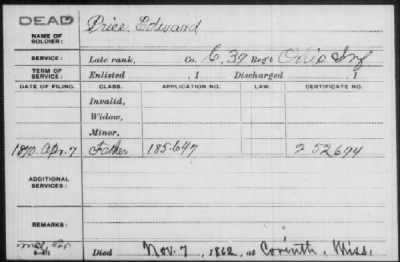 DEAD
NAME OF SOLDIER: Price, Edward
SERVICE: Late rank, Co. C, 39 Reg't Ohio Inf
TERM OF SERVICE: Enlisted , 1 Discharged , 1
DATE OF FILING. CLASS. APPLICATION NO. LAW. CERTIFICATE NO.
Invalid,
Widow,
Minor,
1870. Apr. 7 Father 185.647 252694
ADDITIONAL SERVICES:
REMARKS:
Died Nov. 7, 1862, at Corinth, Miss.